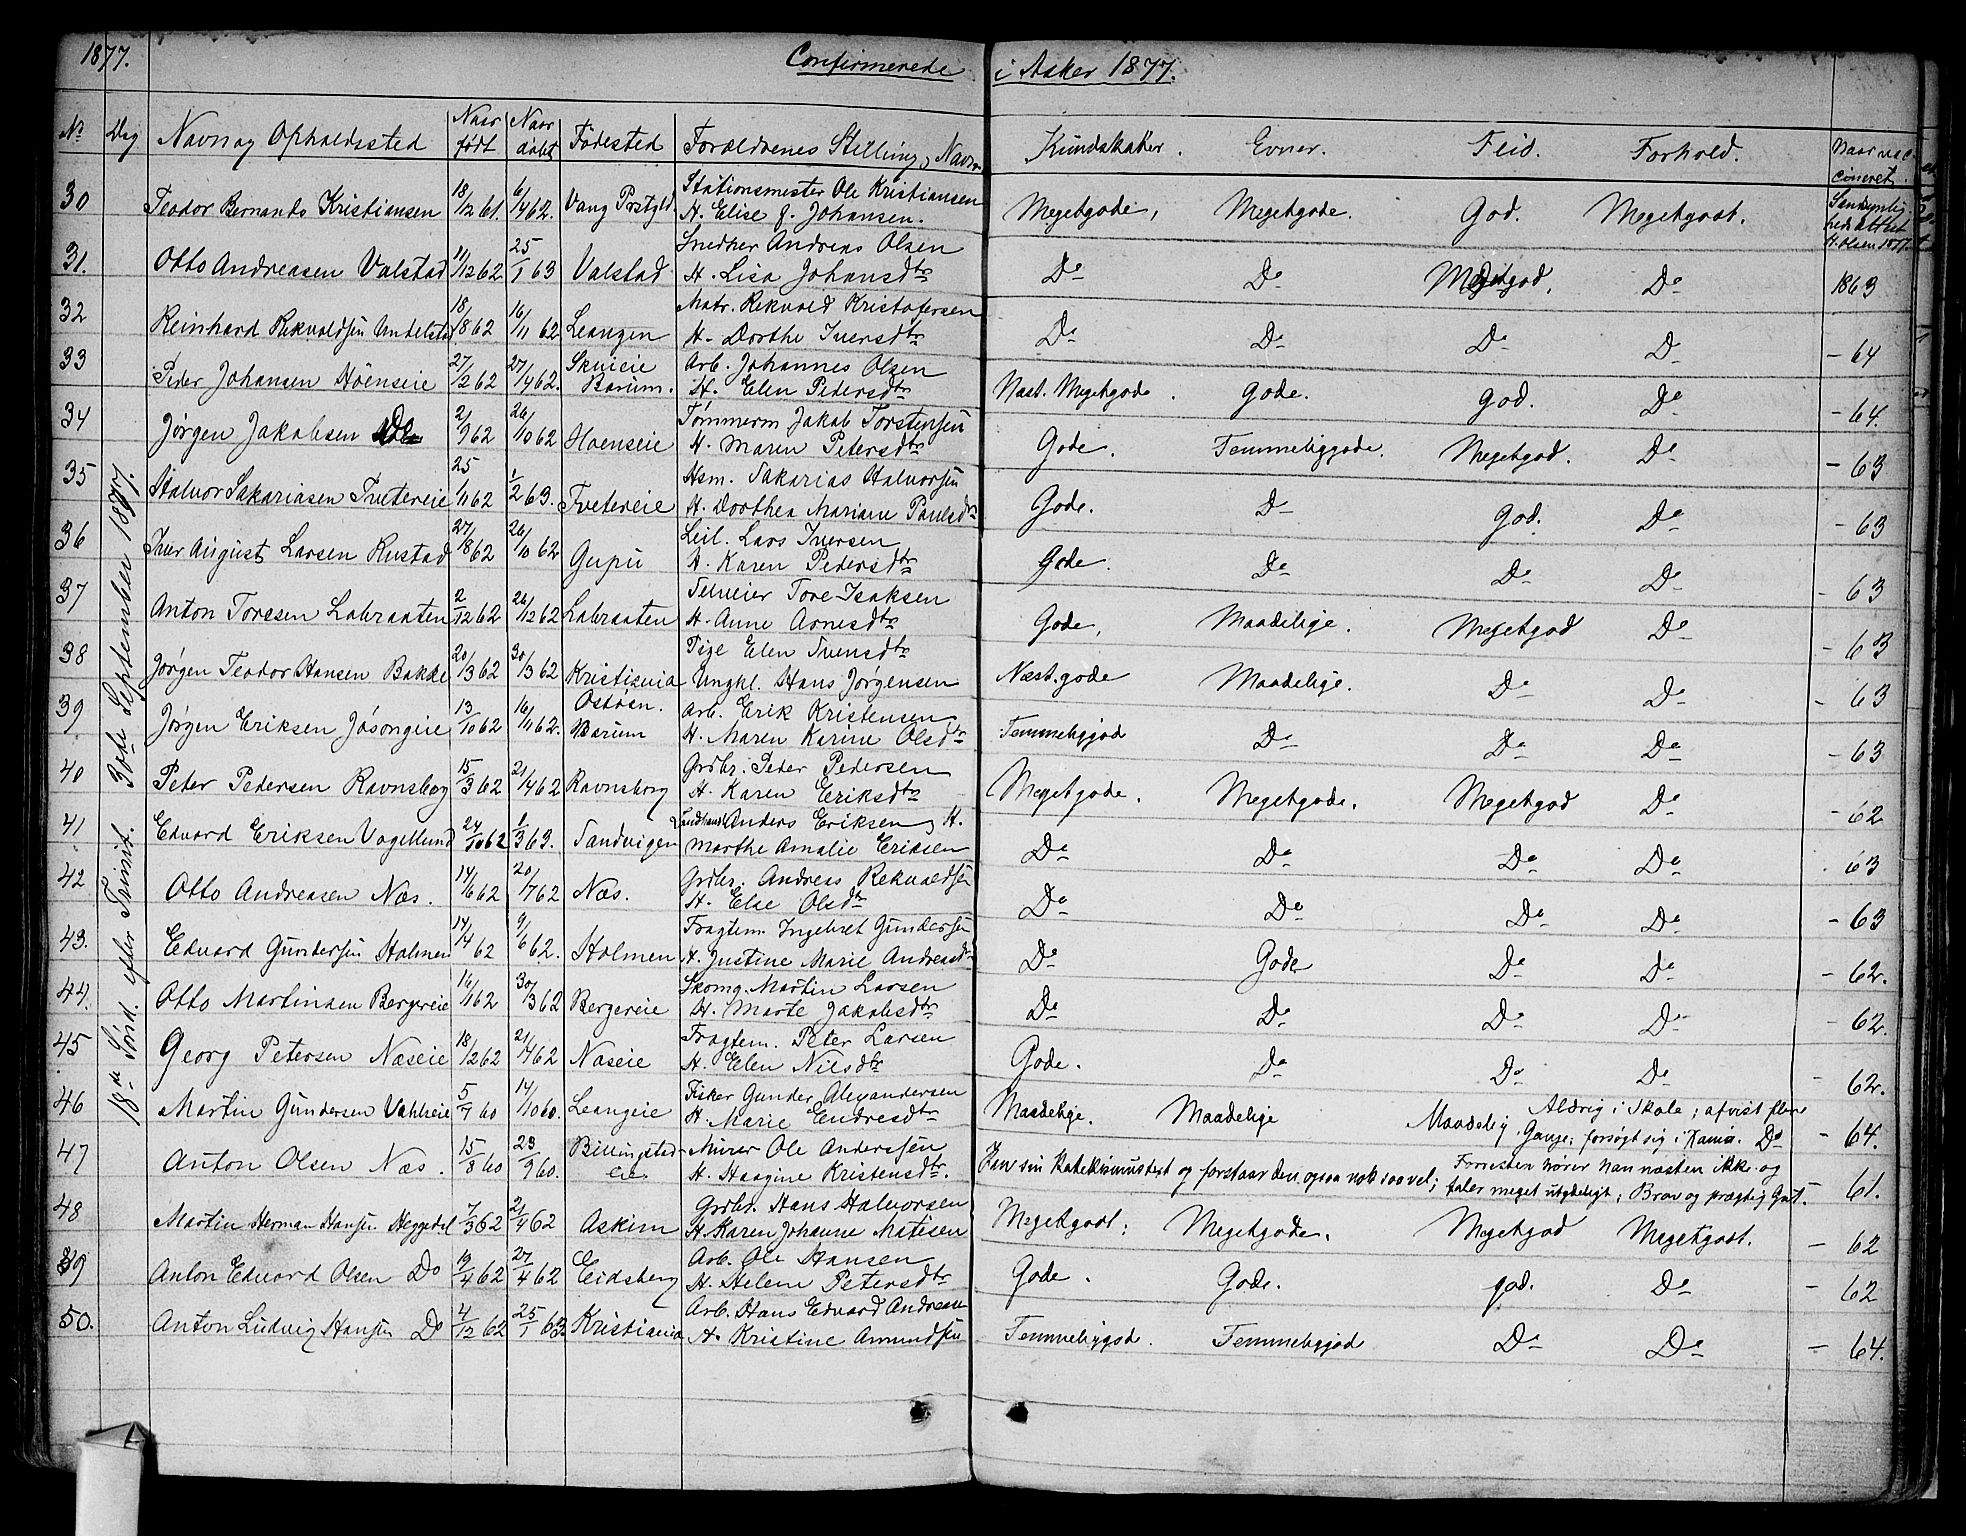 1877.
Confirmerede i Asker 1877.
No Dag Navn og Opholdssted Naar født Naar døbt Fødested Forældrenes Stilling, Navn Kundskaber. Evner. Flid. Forhold. Naar vaccineret
18de Sønd. efter Trinit. 30de September 1877.
30 18/12 61. 6/4 62. Stationsmester Ole Kristiansen
Teodor Bernando Kristiansen Vang Prstgld. H. Elise f. Johansen. Megetgode, Megetgode. God. Megetgodt. Sandsynlig
31. 11/12 62 25/1 63 Snedker Andreas Olsen
Otto Andreasen Valstad Valstad H. Lisa Johansdtr Do Do Megetgod. Do 1863
32 18/8 62 16/11 62 Matr. Rekvald Kristofersen
Reinhard Rekvaldsen Undelstad Leangen H. Dorthe Iversdtr Do Do Do Do - 64
33 27/2 62 27/4 62. Skuieie Arb. Johannes Olsen
Peder Johansen Høenseie Barum. H. Elen Pedersdtr Næst. Megetgode. gode. god. Do - 64.
34 2/9 62 26/10 62 Tømmerm Jakob Torstensen
Jørgen Jakobsen Do Hoenseie H. Maren Petersdtr Gode. Temmeliggode. Megetgod. Do - 63
35 25/11 62 1/2 63. Hsm. Sakarias Halvorsen
Halvor Sakariasen Tvetereie Tvetereie H. Dorthea Mariane Paulsdr Gode. Do god. Do - 63
36 27/8 62 26/10 62 Leil. Lars Iversen
Iver August Larsen Rustad Gupu H. Karen Pedersdtr Gode. Do Do Do - 63
37 2/12 62 26/12 62 Selveier Tore Isaksen
Anton Toresen Labraaten Labraaten H. Anne Arnesdtr Gode, Maadelige. Megetgod Do - 63
38 20/3 62 30/3 62 Pige Elen Svensdtr
Jørgen Teodor Hansen Bakke Kristiania Ungkl. Hans Jørgensen Næst. gode Maadelige. Do Do - 63
39 13/10 62 16/11 62. Ostøen. Arb. Erik Kristensen
Jørgen Eriksen Jøsongeie Barum H. Maren Karine Olsdtr Temmeliggod Do Do Do - 63
40 15/3 62 21/4 62 Grdbr. Peder Pedersen
Peter Pedersen Ravnsborg Ravnsborg H. Karen Eriksdtr Megetgode. Megetgode. Megetgod Do - 62
41 24/10 62 1/3 63. Landhandl Anders Eriksen, H.
Edvard Eriksen Vogellund Sandvigen Marthe Amalie Eriksen Do Do Do Do . 63
42 14/6 62 20/7 62 Grdbr. Andreas Rekvaldsen
Otto Andreasen Næs. Næs. H. Else Olsdtr Do Do Do Do - 63
43. 14/4 62 9/6 62. Fragtem Ingebret Gundersen
Edvard Gundersen Holmen Holmen H. Justine Marie Andreasdr Do Gode Do Do - 62.
44. 16/1 62 30/3 62 Skomg. Martin Larsen
Otto Martinsen Bergereie Bergereie H. Marte Jakobsdtr Do Do Do Do - 62.
45 18/12 62 21/4 62 Fragtem. Peter Larsen
Georg Petersen Næseie Næseie H. Elen Nilsdtr Gode. Do Do Do - 62.
46 5/7 60 14/10 60. Fisker Gunder Alexandersen Aldrig i Skole; afvist flere
Martin Gundersen Vahleie Leangeie H. Marie Endresdtr Maadelige. Maadelige Maadelig. Gange; forsøgt sig i Kania. Do - 64.
47 15/8 60 23/9 60. Billingstad- Murer Ole Anderssen Forresten hører han næsten ikke og
Anton Olsen Næs. eie H. Haagine Kristensdtr. Kan sin Katekismustext og forstaar den ogsaa nok saa vel; taler meget utydeligt; Brav og prægtig Gut. - 61.
48 7/3 62 21/4 62 Grdbr. Hans Halvorsen
Martin Herman Hansen Heggedal Askim H. Karen Johanne Matisen Megetgodt. Megetgode. Megetgod Megetgodt. - 62
49 9/4 62 27/4 62 Arb. Ole Hansen
Anton Edvard Olsen Do Eidsberg H. Helene Petersdtr Gode. Gode. god. Do - 62
50. 4/12 62 25/1 63 Arb. Hans Edvard Andreasen
Anton Ludvig Hansen Do Kristiania H. Kristine Amundsen Temmeliggod. Temmeliggod Do Do - 64.